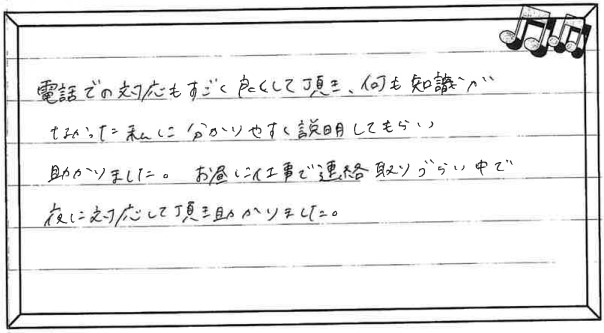 電話での対応もすごく良くして頂き、何も知識が
なかった私に分かりやすく説明してもらい
助かりました。 お昼に仕事で連絡取りづらい中で
夜に対応して頂き助かりました。